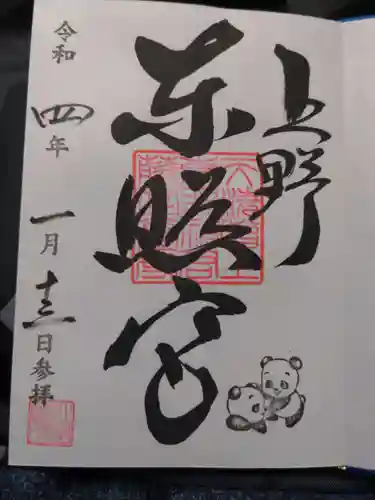 上野
东照宮
令和四年一月十三日参拝